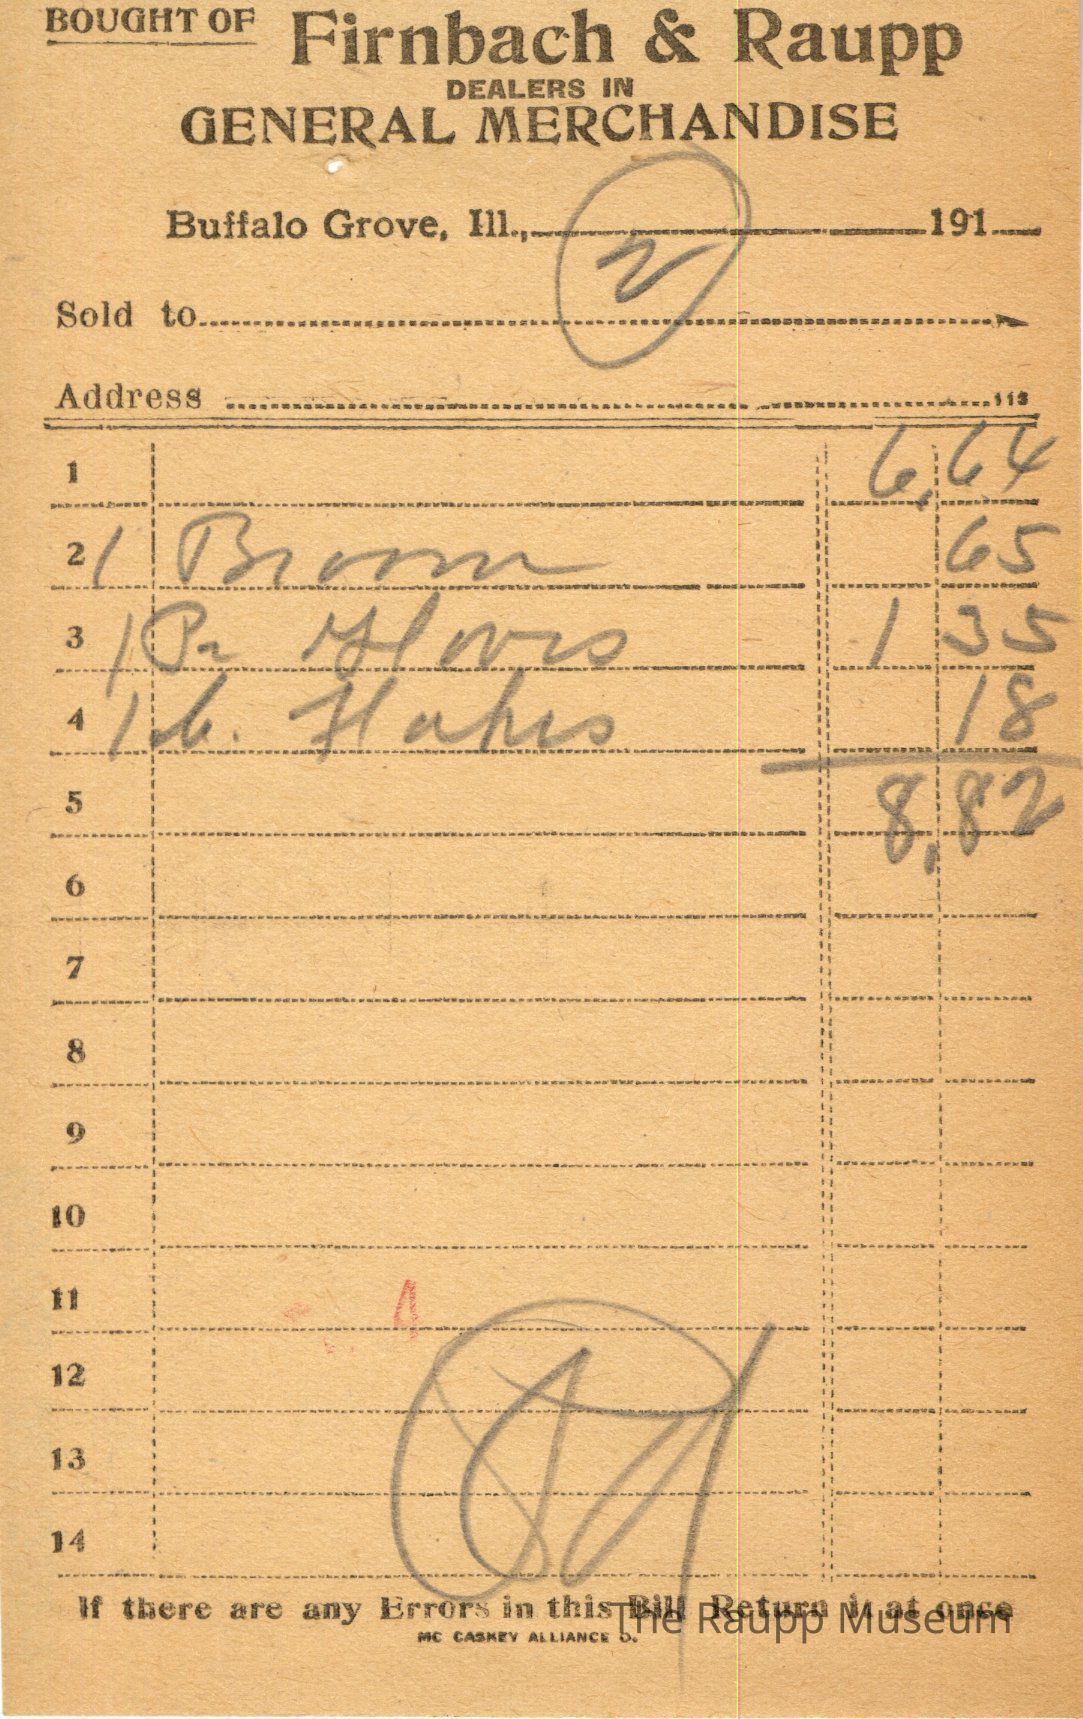 BOUGHT OF Firnbach & Raupp
DEALERS IN
GENERAL MERCHANDISE
Buffalo Grove, Ill., 191
2
Sold to
Address
113
1 6,64
2 1 Broom 65
3 1 Pr Gloves 1 35
4 1 Flakes 18
5 8,82
6
7
8
9
10
11
12
13
14
If there are any Errors in this Bill Return it at once
MC CASKEY ALLIANCE O.
The Raupp Museum